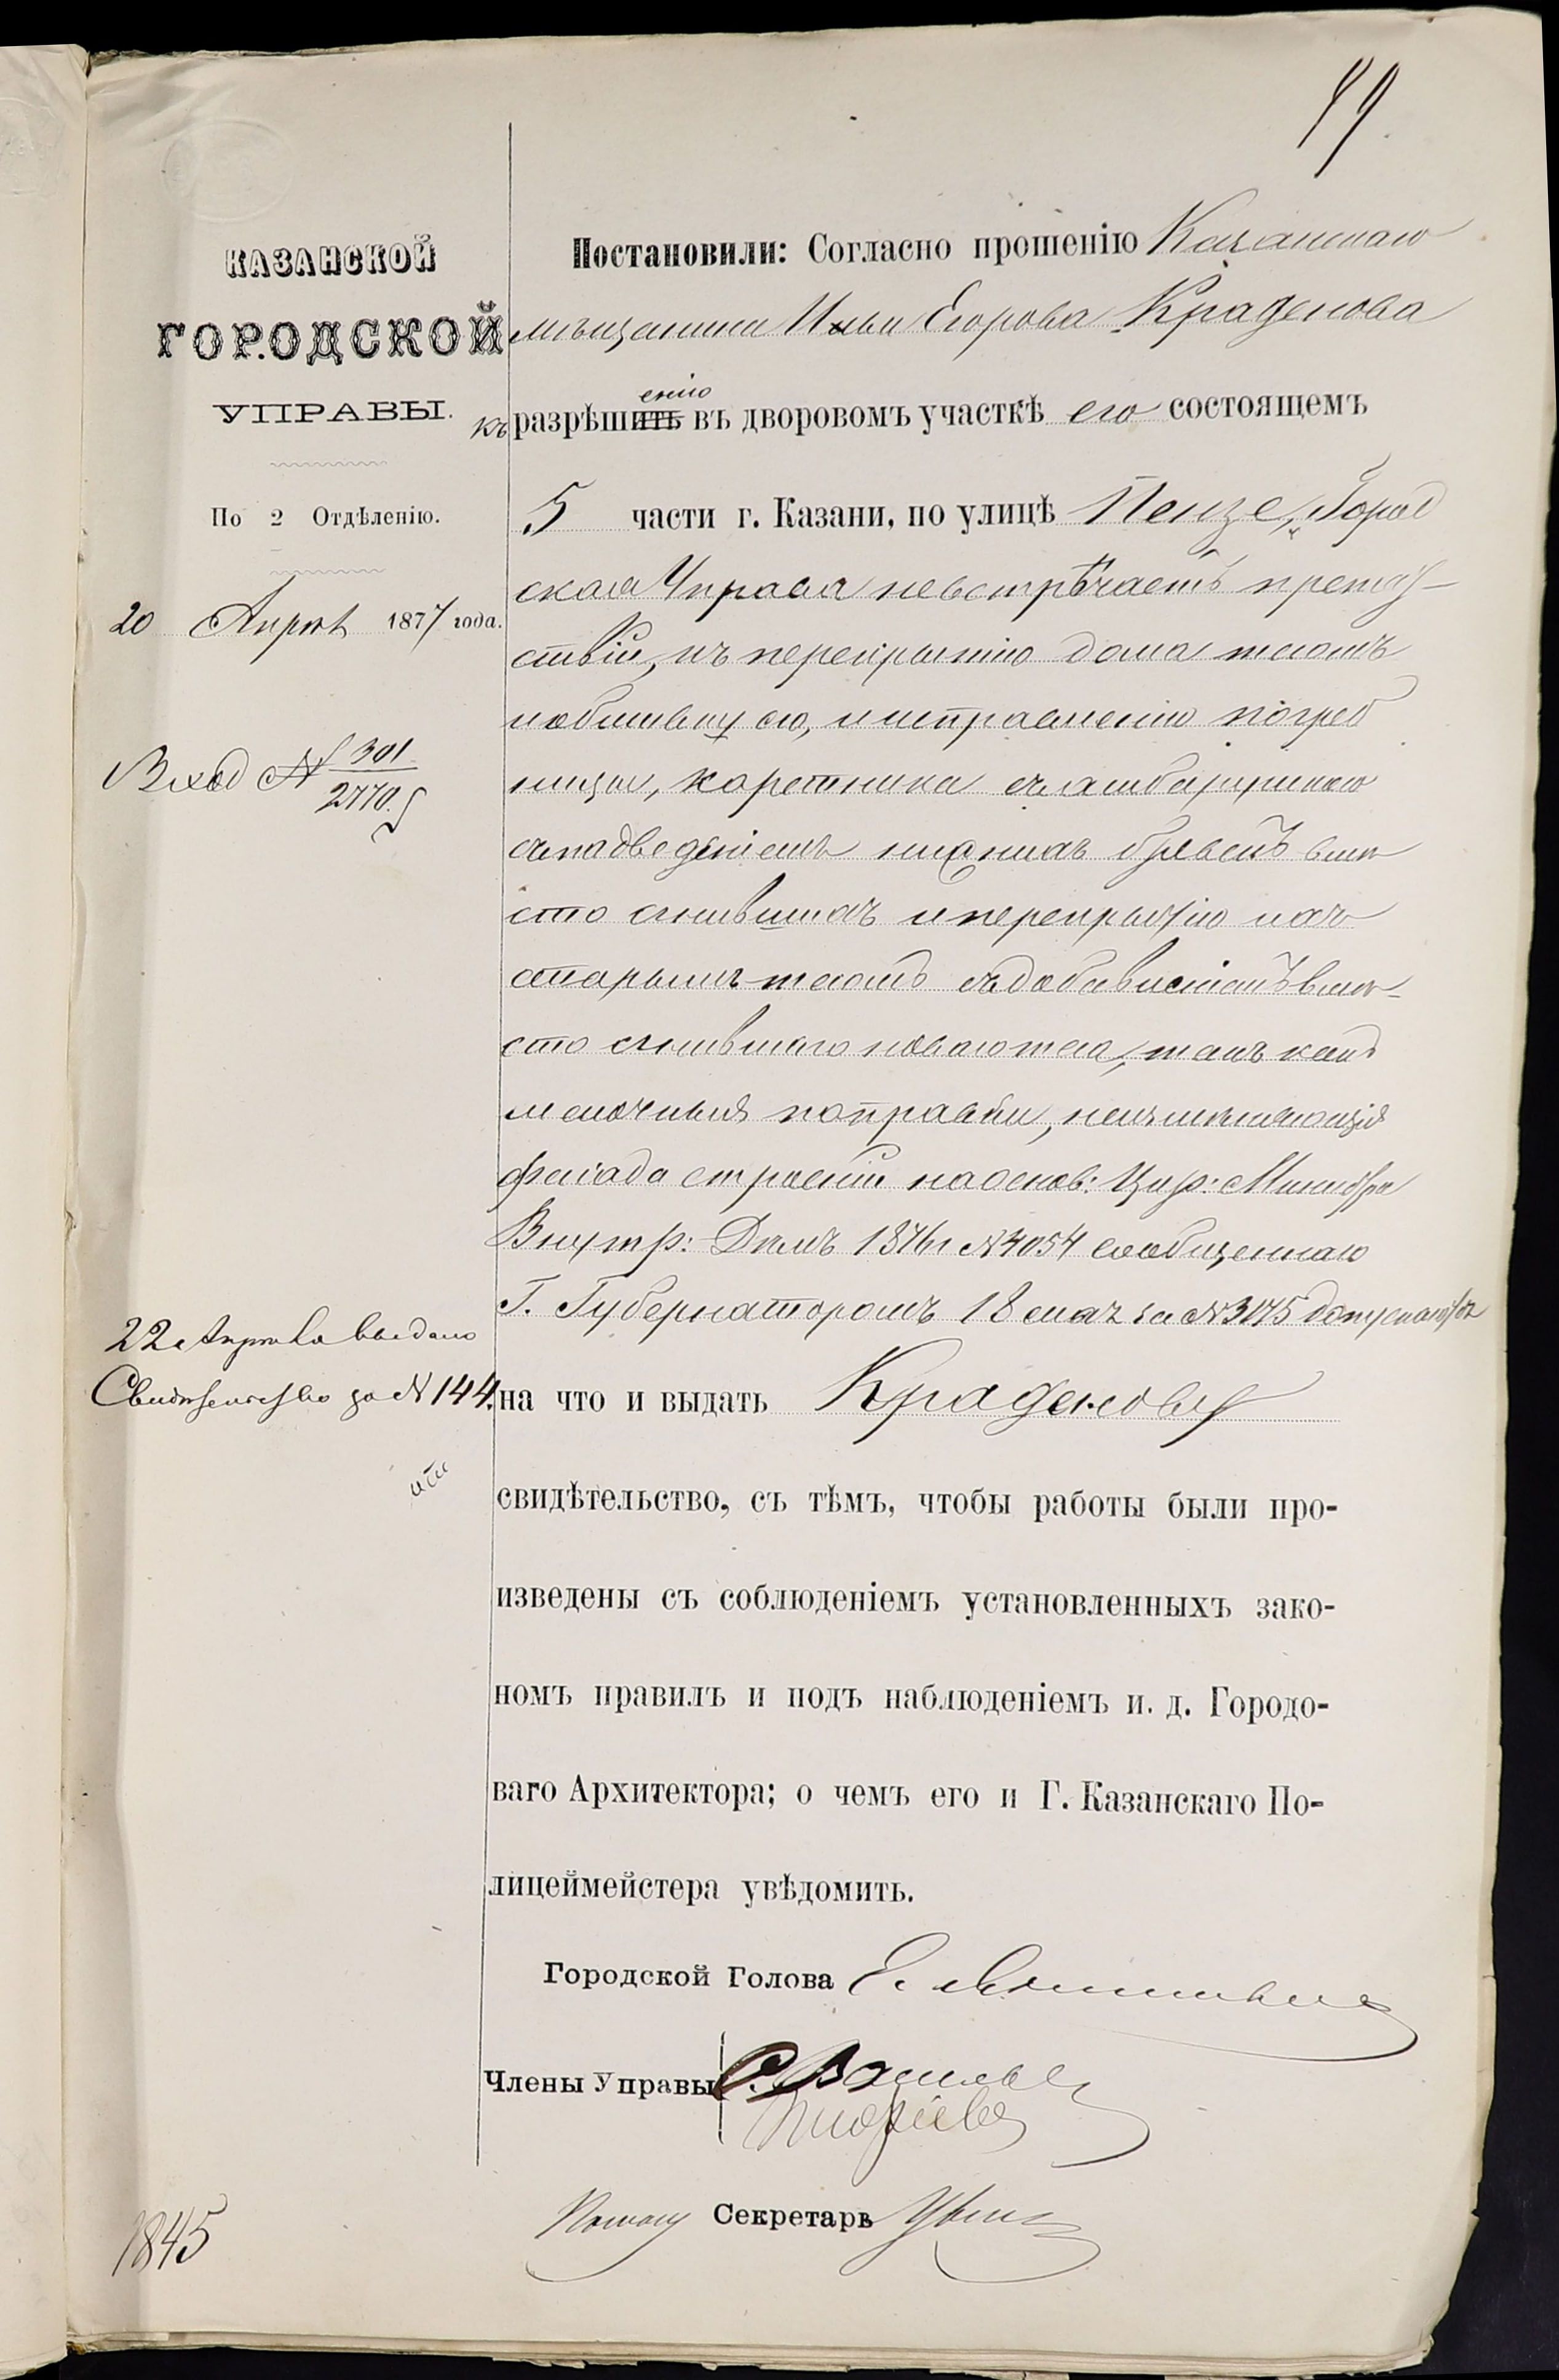 49.
КАЗАНСКОЙ
ГОРОДСКОЙ
УПРАВЫ.
По 2 Отдѣленію.
20 Апрѣля 1877 года.
Вход № 301
2770.
22 Апрѣля выдано
Свидѣтельство за № 144.
1845
Постановили: Согласно прошенію Казанскаго
мѣщанина Ильи Егорова Краденова
къ разрѣшить енію въ дворовомъ участкѣ его состоящемъ
5 части г. Казани, по улицѣ Пензе, Город
ская Управа невстрѣчаетъ препят-
ствій, къ перекрытію дома тесомъ
и исправленію погреб
ницы, каретника
съ подведеніемъ нижнихъ вмѣ
сто сгнившихъ и перекрытію ихъ
старымъ тесомъ съ добавленіемъ вмѣ-
сто сгнившаго новаго теса, такъ какъ
мелочныя поправки, неизмѣняющія
фасада строеній на основ: Цир: Министра
Внутр: Дѣлъ 1876 г. № 4054 сообщеннаго
Г. Губернаторомъ 18 за № 3175 допускаются
на что и выдать Краденову
свидѣтельство, съ тѣмъ, чтобы работы были про-
изведены съ соблюденіемъ установленныхъ зако-
номъ правилъ и подъ наблюденіемъ и. д. Городо-
ваго Архитектора; о чемъ его и Г. Казанскаго По-
лицеймейстера увѣдомить.
Городской Голова
Члены Управы С. Васильев
Секретарь